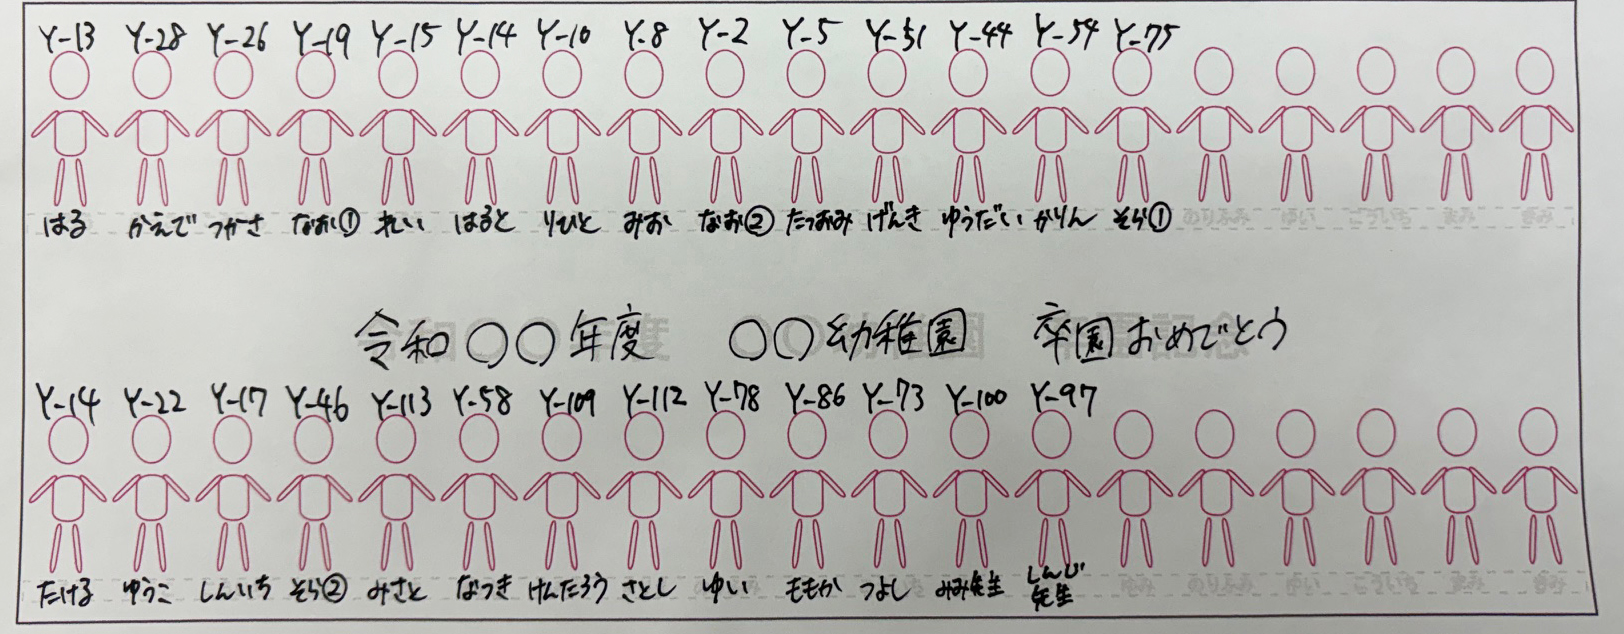 Y-13 Y-28 Y-26 Y-19 Y-15 Y-14 Y-10 Y-8 Y-2 Y-5 Y-51 Y-44 Y-54 Y-75
はる かえで つかさ なお① れい はると りひと みお なお② たつおみ げんき ゆうだい かりん そら①
令和〇〇年度 〇〇幼稚園 卒園おめでとう
Y-14 Y-22 Y-17 Y-46 Y-113 Y-58 Y-109 Y-112 Y-78 Y-86 Y-73 Y-100 Y-97
たける ゆうこ しんいち そら② みさと なつき けんたろう さとし ゆい ももか つよし みみ先生 しんじ先生